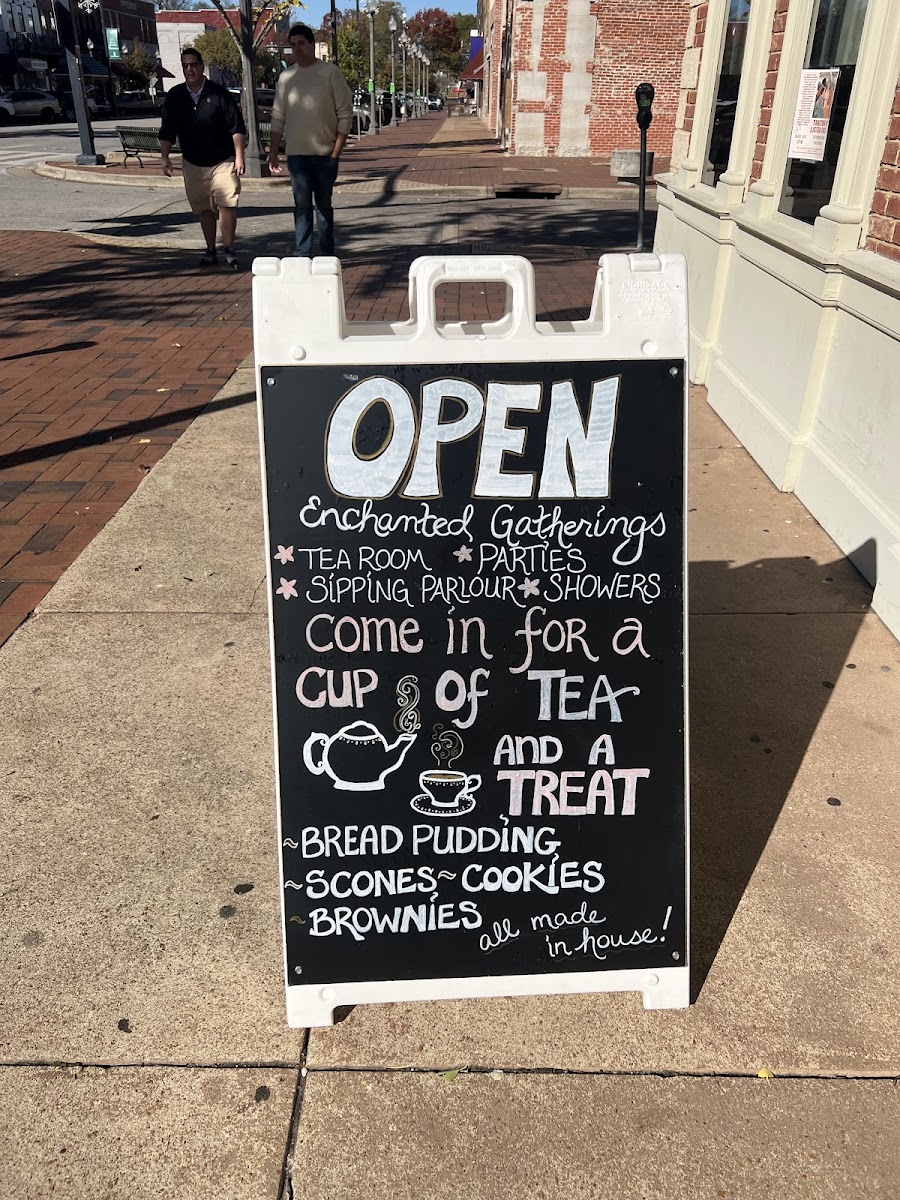 OPEN
Enchanted Gatherings
TEA ROOM PARTIES
SIPPING PARLOUR SHOWERS
come in for a
CUP of TEA
AND A
TREAT
~BREAD PUDDING
~SCONES~COOKIES
~BROWNIES
all made
in house!